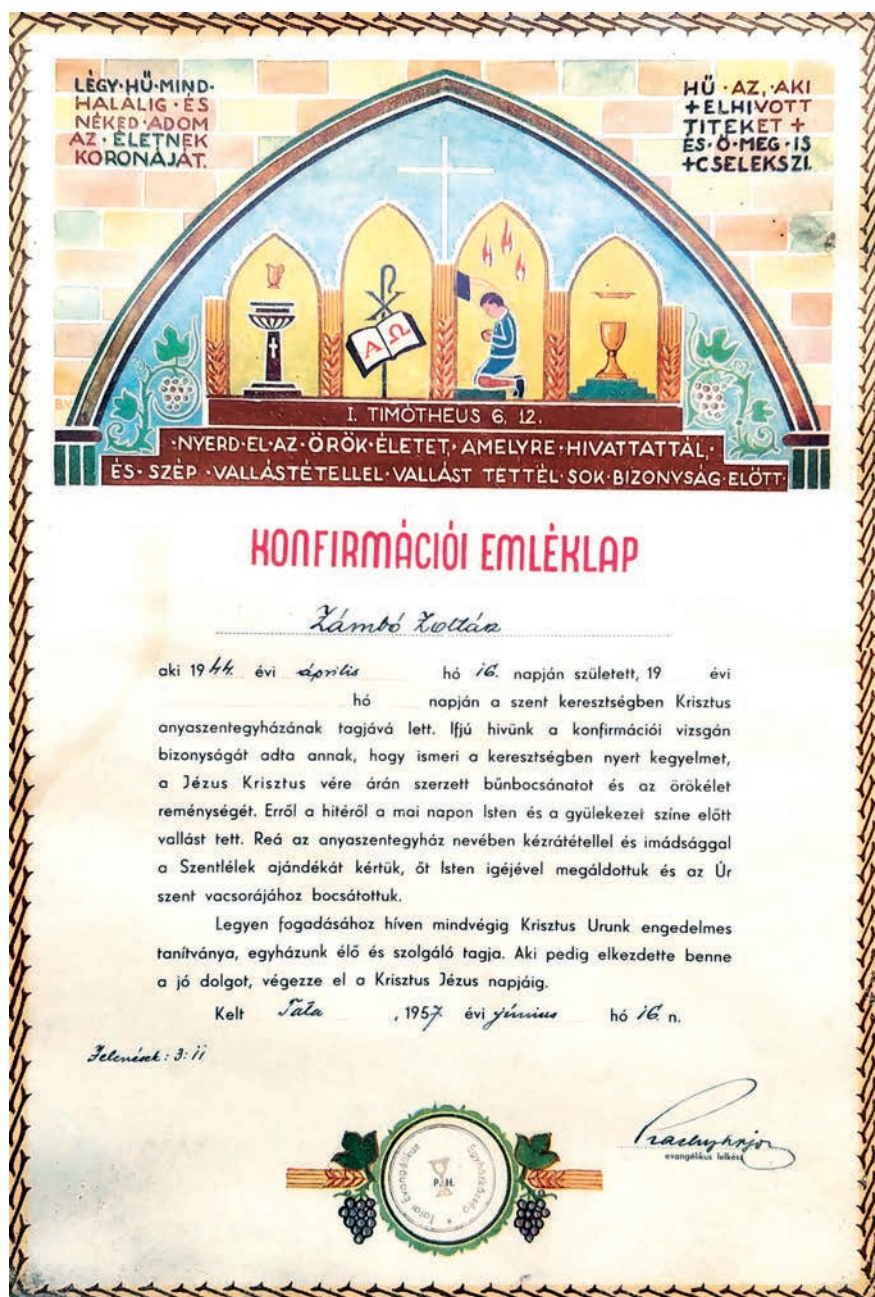 LÉGY·HŰ·MIND-
HALÁLIG·ÉS
NÉKED·ADOM
AZ·ÉLETNEK
KORONÁJÁT.
HŰ·AZ, AKI
+ELHIVOTT
TITEKET+
ÉS·Ő·MEG·IS
+CSELEKSZI.
Α Ω
I. TIMÓTHEUS 6, 12.
·NYERD·EL·AZ·ÖRÖK·ÉLETET, AMELYRE·HIVATTATTÁL,·
ÉS·SZÉP·VALLÁSTÉTELLEL·VALLÁST TETTÉL·SOK·BIZONYSÁG·ELŐTT·
KONFIRMÁCIÓI EMLÉKLAP
Zámbó Zoltán
aki 1944. évi április hó 16. napján született, 19 évi
hó napján a szent keresztségben Krisztus
anyaszentegyházának tagjává lett. Ifjú hivünk a konfirmációi vizsgán
bizonyságát adta annak, hogy ismeri a keresztségben nyert kegyelmet,
a Jézus Krisztus vére árán szerzett bűnbocsánatot és az örökélet
reménységét. Erről a hitéről a mai napon Isten és a gyülekezet színe előtt
vallást tett. Reá az anyaszentegyház nevében kézrátétellel és imádsággal
a Szentlélek ajándékát kértük, őt Isten igéjével megáldottuk és az Úr
szent vacsorájához bocsátottuk.
Legyen fogadásához híven mindvégig Krisztus Urunk engedelmes
tanítványa, egyházunk élő és szolgáló tagja. Aki pedig elkezdette benne
a jó dolgot, végezze el a Krisztus Jézus napjáig.
Kelt Tata, 1957 évi június hó 16. n.
Jelenések: 3:11
evangélikus lelkész
Tatai Evangélikus Egyházközség
P. H.